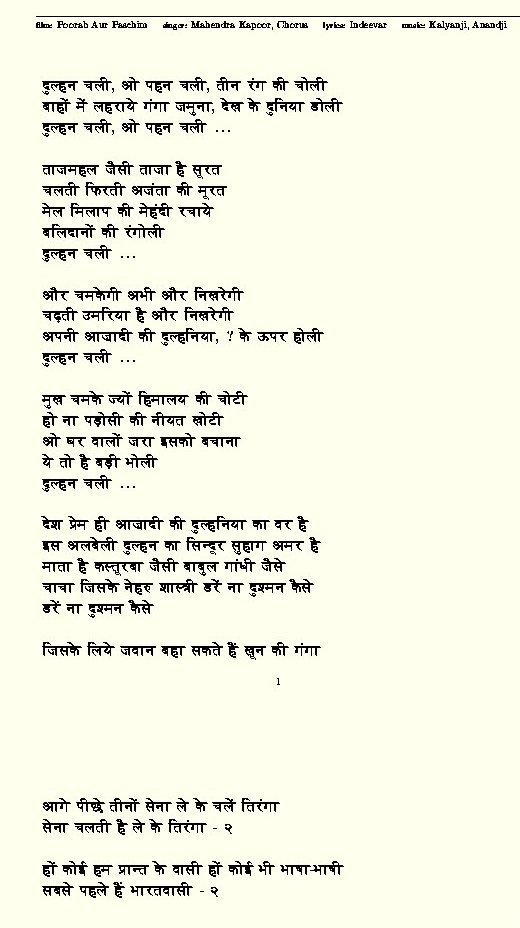 film: Poorab Aur Paschim singer: Mahendra Kapoor, Chorus lyrics: Indeevar music: Kalyanji, Anandji
दुल्हन चली, ओ पहन चली, तीन रंग की चोली
बाहों में लहराये गंगा जमुना, देख के दुनिया डोली
दुल्हन चली, ओ पहन चली ...
ताजमहल जैसी ताजा है सूरत
चलती फिरती अजंता की मूरत
मेल मिलाप की मेहंदी रचाये
बलिदानों की रंगोली
दुल्हन चली ...
और चमकेगी अभी और निखरेगी
चढ़ती उमरिया है और निखरेगी
अपनी आजादी की दुल्हनिया, ? के ऊपर होली
दुल्हन चली ...
मुख चमके ज्यों हिमालय की चोटी
हो ना पड़ोसी की नीयत खोटी
ओ घर वालों जरा इसको बचाना
ये तो है बड़ी भोली
दुल्हन चली ...
देश प्रेम ही आजादी की दुल्हनिया का वर है
इस अलबेली दुल्हन का सिन्दूर सुहाग अमर है
माता है कस्तूरबा जैसी बाबुल गांधी जैसे
चाचा जिसके नेहरु शास्त्री डरें ना दुश्मन कैसे
डरें ना दुश्मन कैसे
जिसके लिये जवान बहा सकते हैं खून की गंगा
1
आगे पीछे तीनों सेना ले के चलें तिरंगा
सेना चलती है ले के तिरंगा - २
हों कोई हम प्रान्त के वासी हों कोई भी भाषा-भाषी
सबसे पहले हैं भारतवासी - २